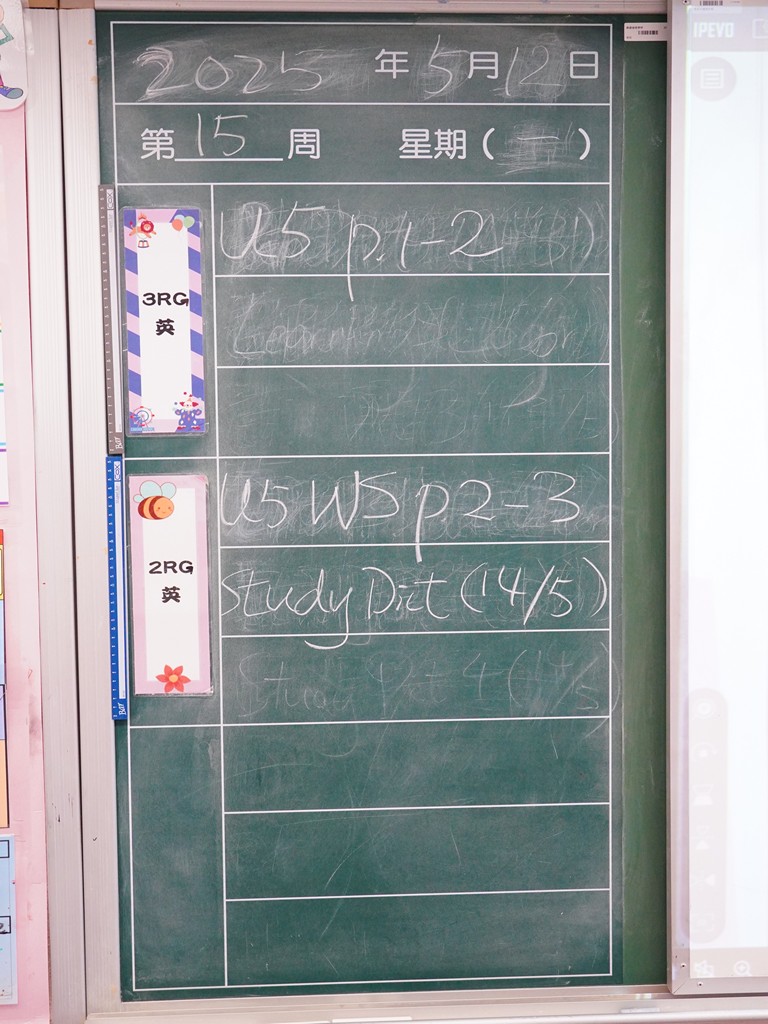 2025 年 5 月 12 日
第 15 周 星期 ( 一 )
3RG
英
U5 p.1-2
2RG
英
U5 WS p2-3
Study Dict (14/5)
IPEVO